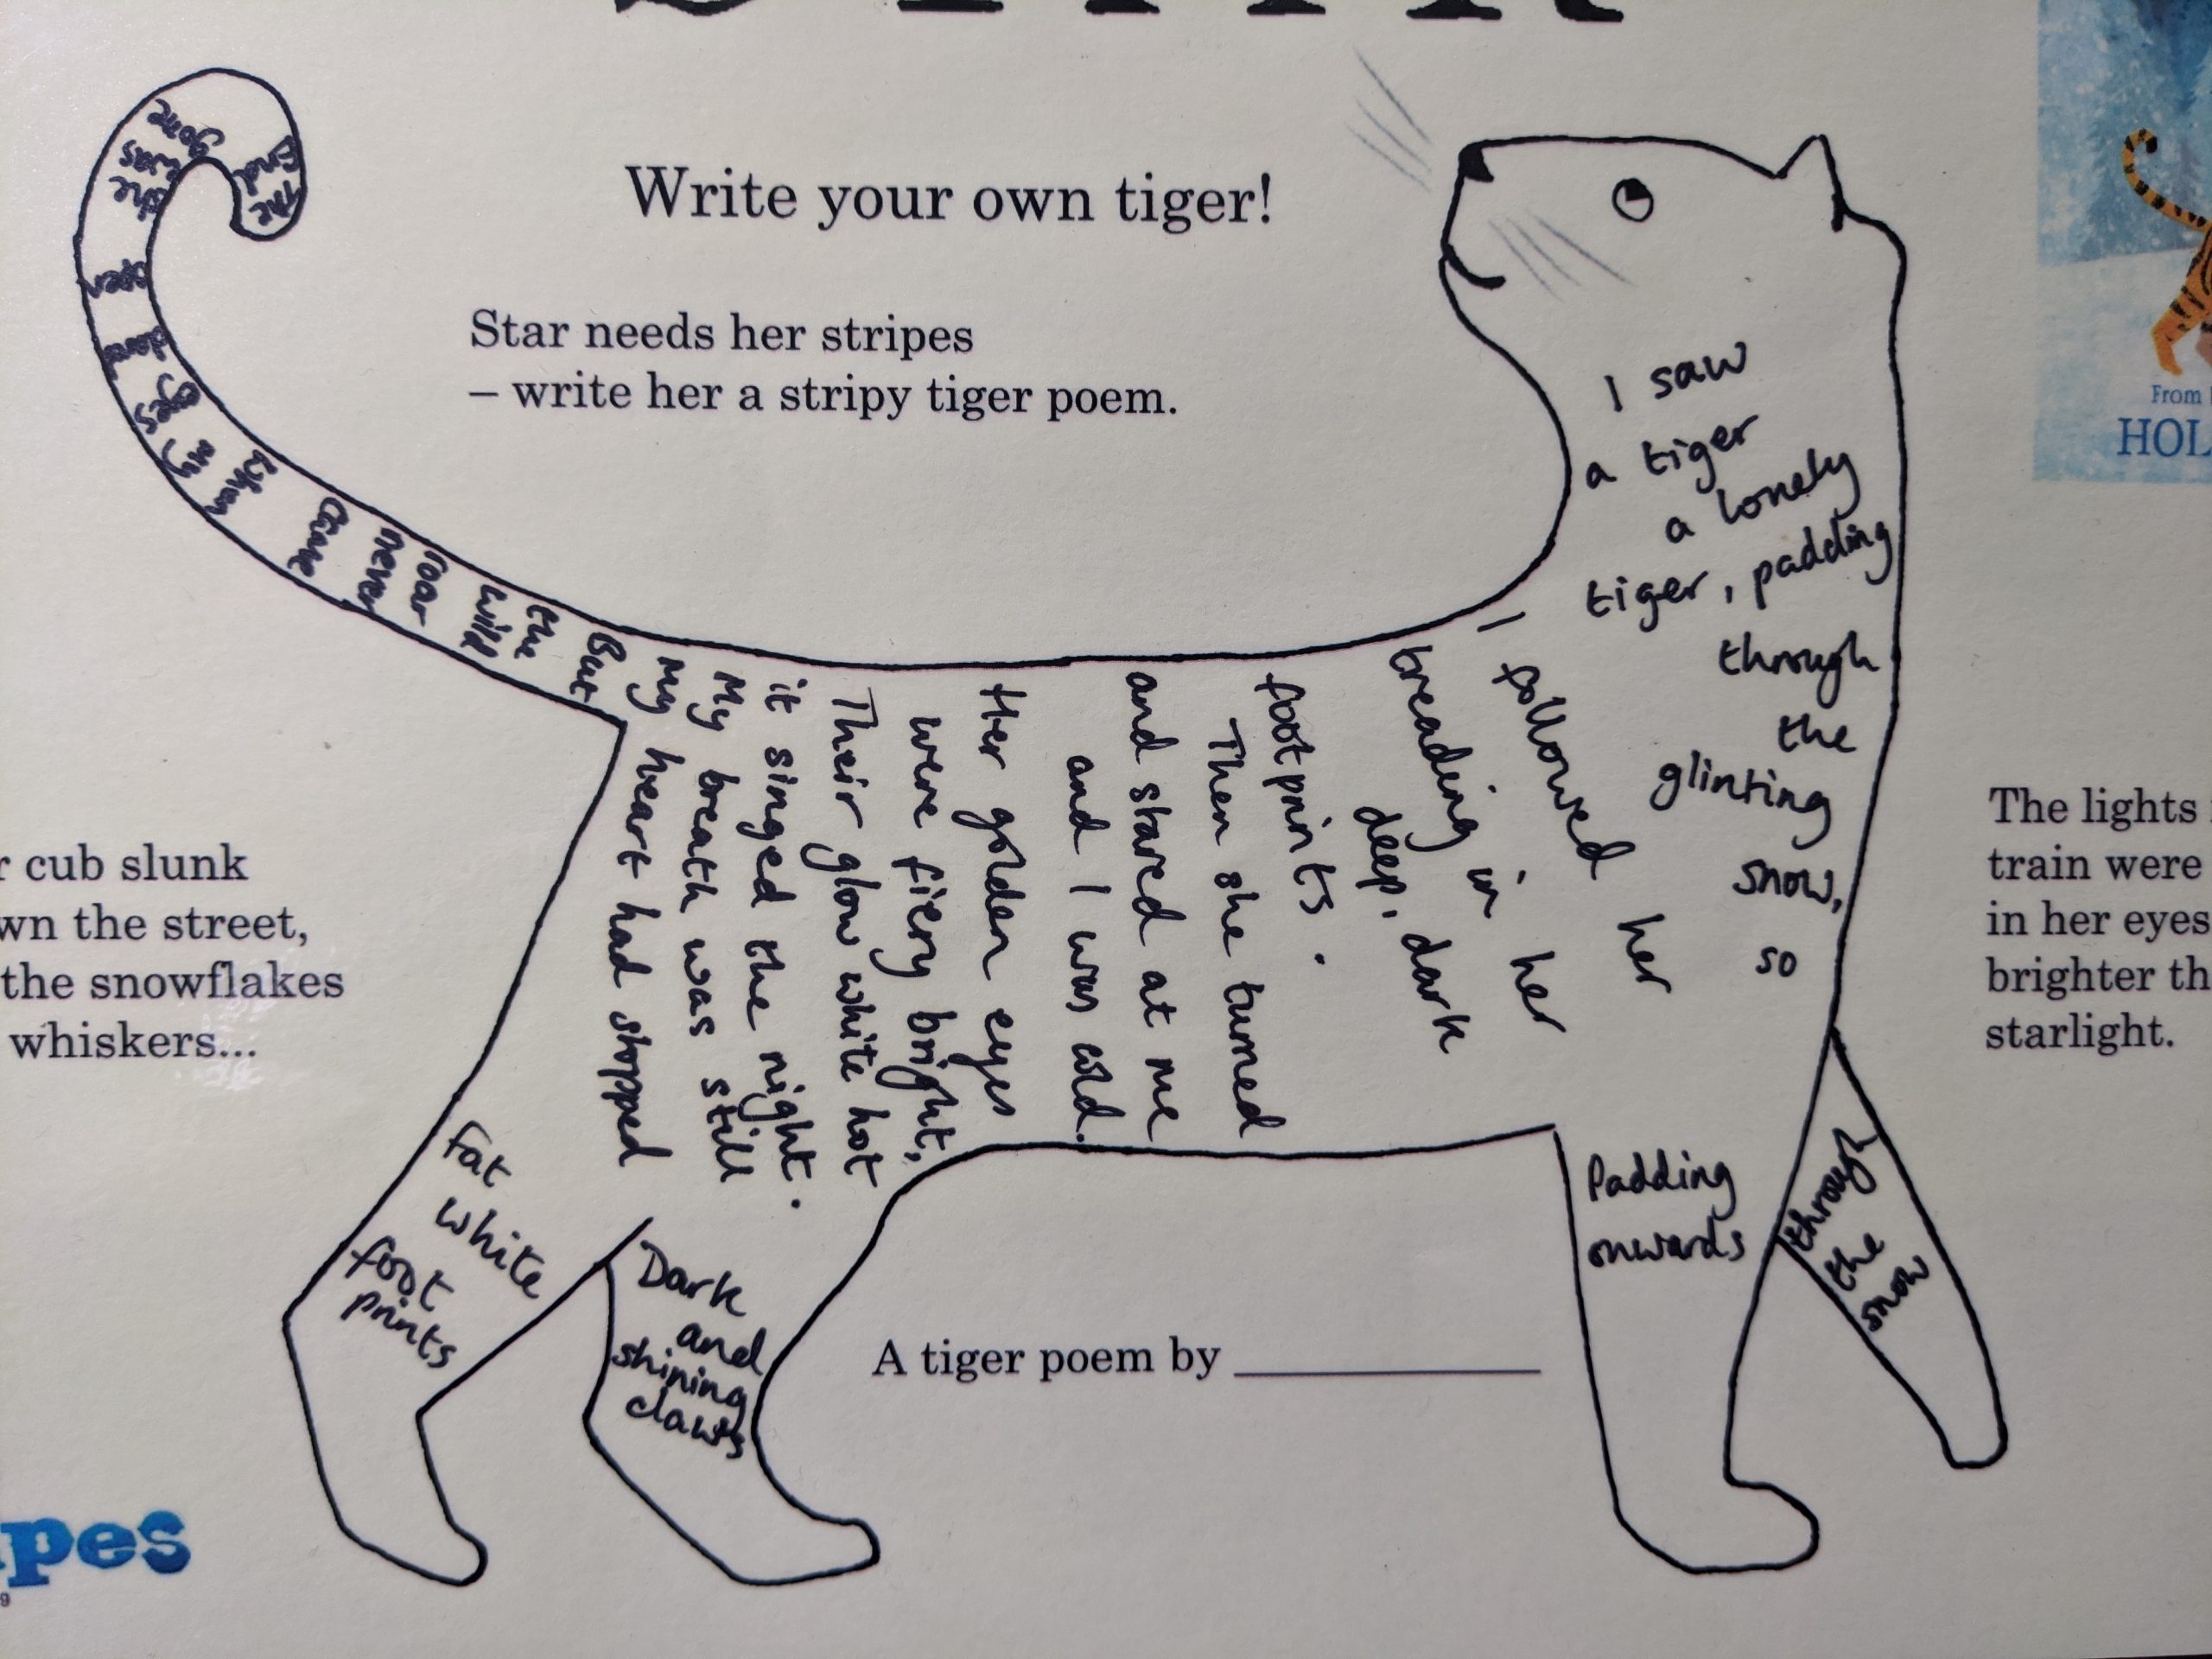 Write your own tiger!
Star needs her stripes
– write her a stripy tiger poem.
I saw
a tiger
a lonely
tiger, padding
through
the
glinting
snow,
so
I followed her
treading in her
deep, dark
footprints.
Then she turned
and stared at me
and I was cold.
Her golden eyes
were fiery bright,
Their glow white hot
it singed the night.
My breath was still
My heart had stopped
But
the
wild
roar
never
came
When
my
eyes
dared
open
she
was
gone
The
End
Padding
onwards
through
the
snow
Dark
and
shining
claws
Fat
white
foot
prints
A tiger poem by
From
HOL
cub slunk
wn the street,
the snowflakes
whiskers...
The lights
train were
in her eyes
brighter th
starlight.
pes
9